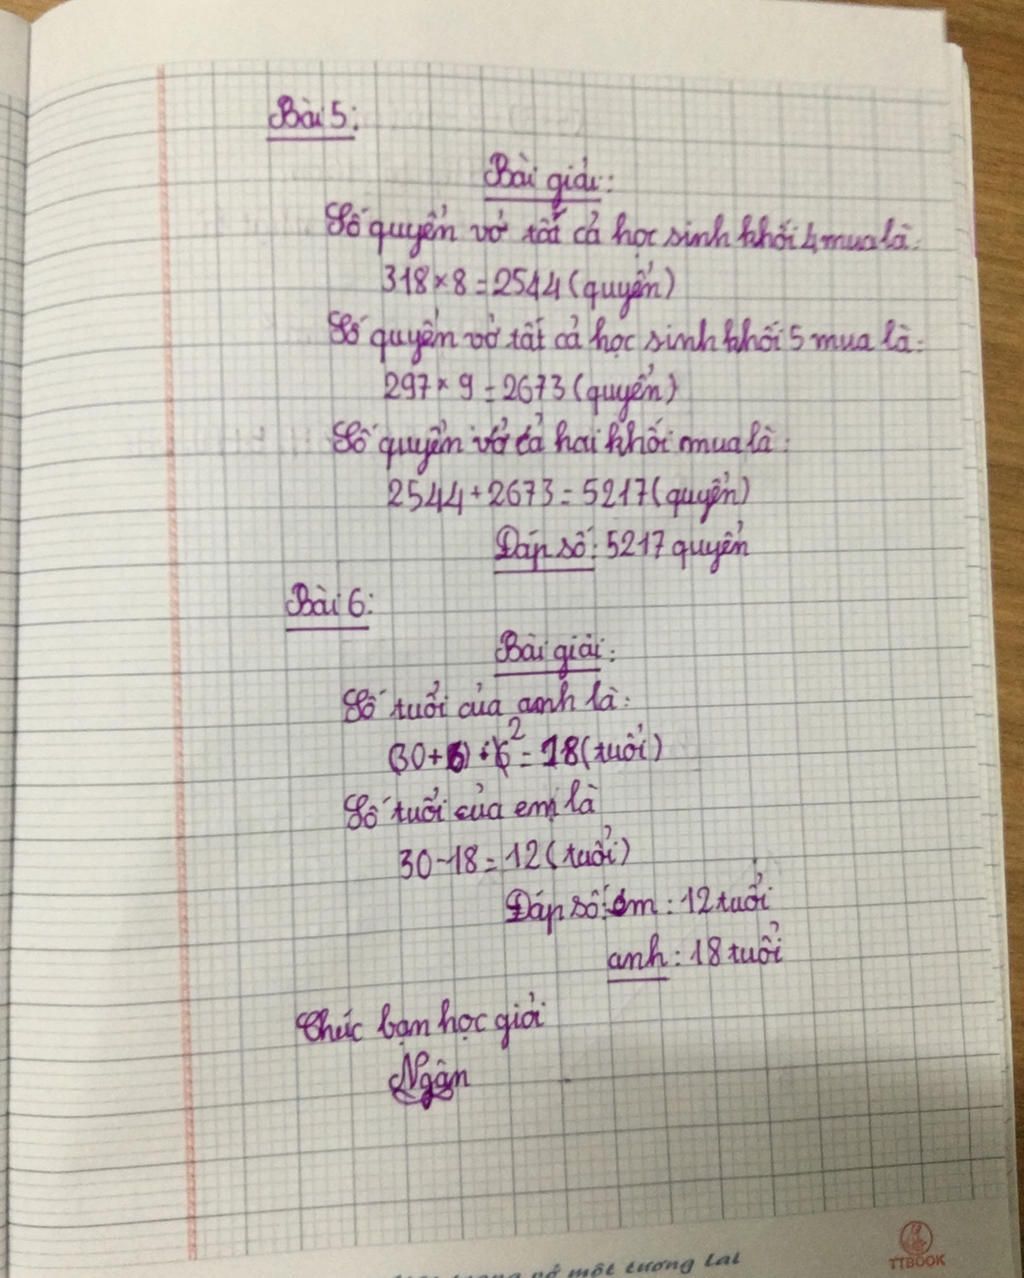 Bài 5:
Bài giải:
Số quyển vở tất cả học sinh khối 4 mua là:
318 × 8 = 2544 (quyển)
Số quyển vở tất cả học sinh khối 5 mua là:
297 × 9 = 2673 (quyển)
Số quyển vở cả hai khối mua là:
2544 + 2673 = 5217 (quyển)
Đáp số: 5217 quyển
Bài 6:
Bài giải:
Số tuổi của anh là:
(30 + 6) : 2 = 18 (tuổi)
Số tuổi của em là
30 - 18 = 12 (tuổi)
Đáp số: em: 12 tuổi
anh: 18 tuổi
Chúc bạn học giỏi
Ngân
vở một tương lai
TTBOOK